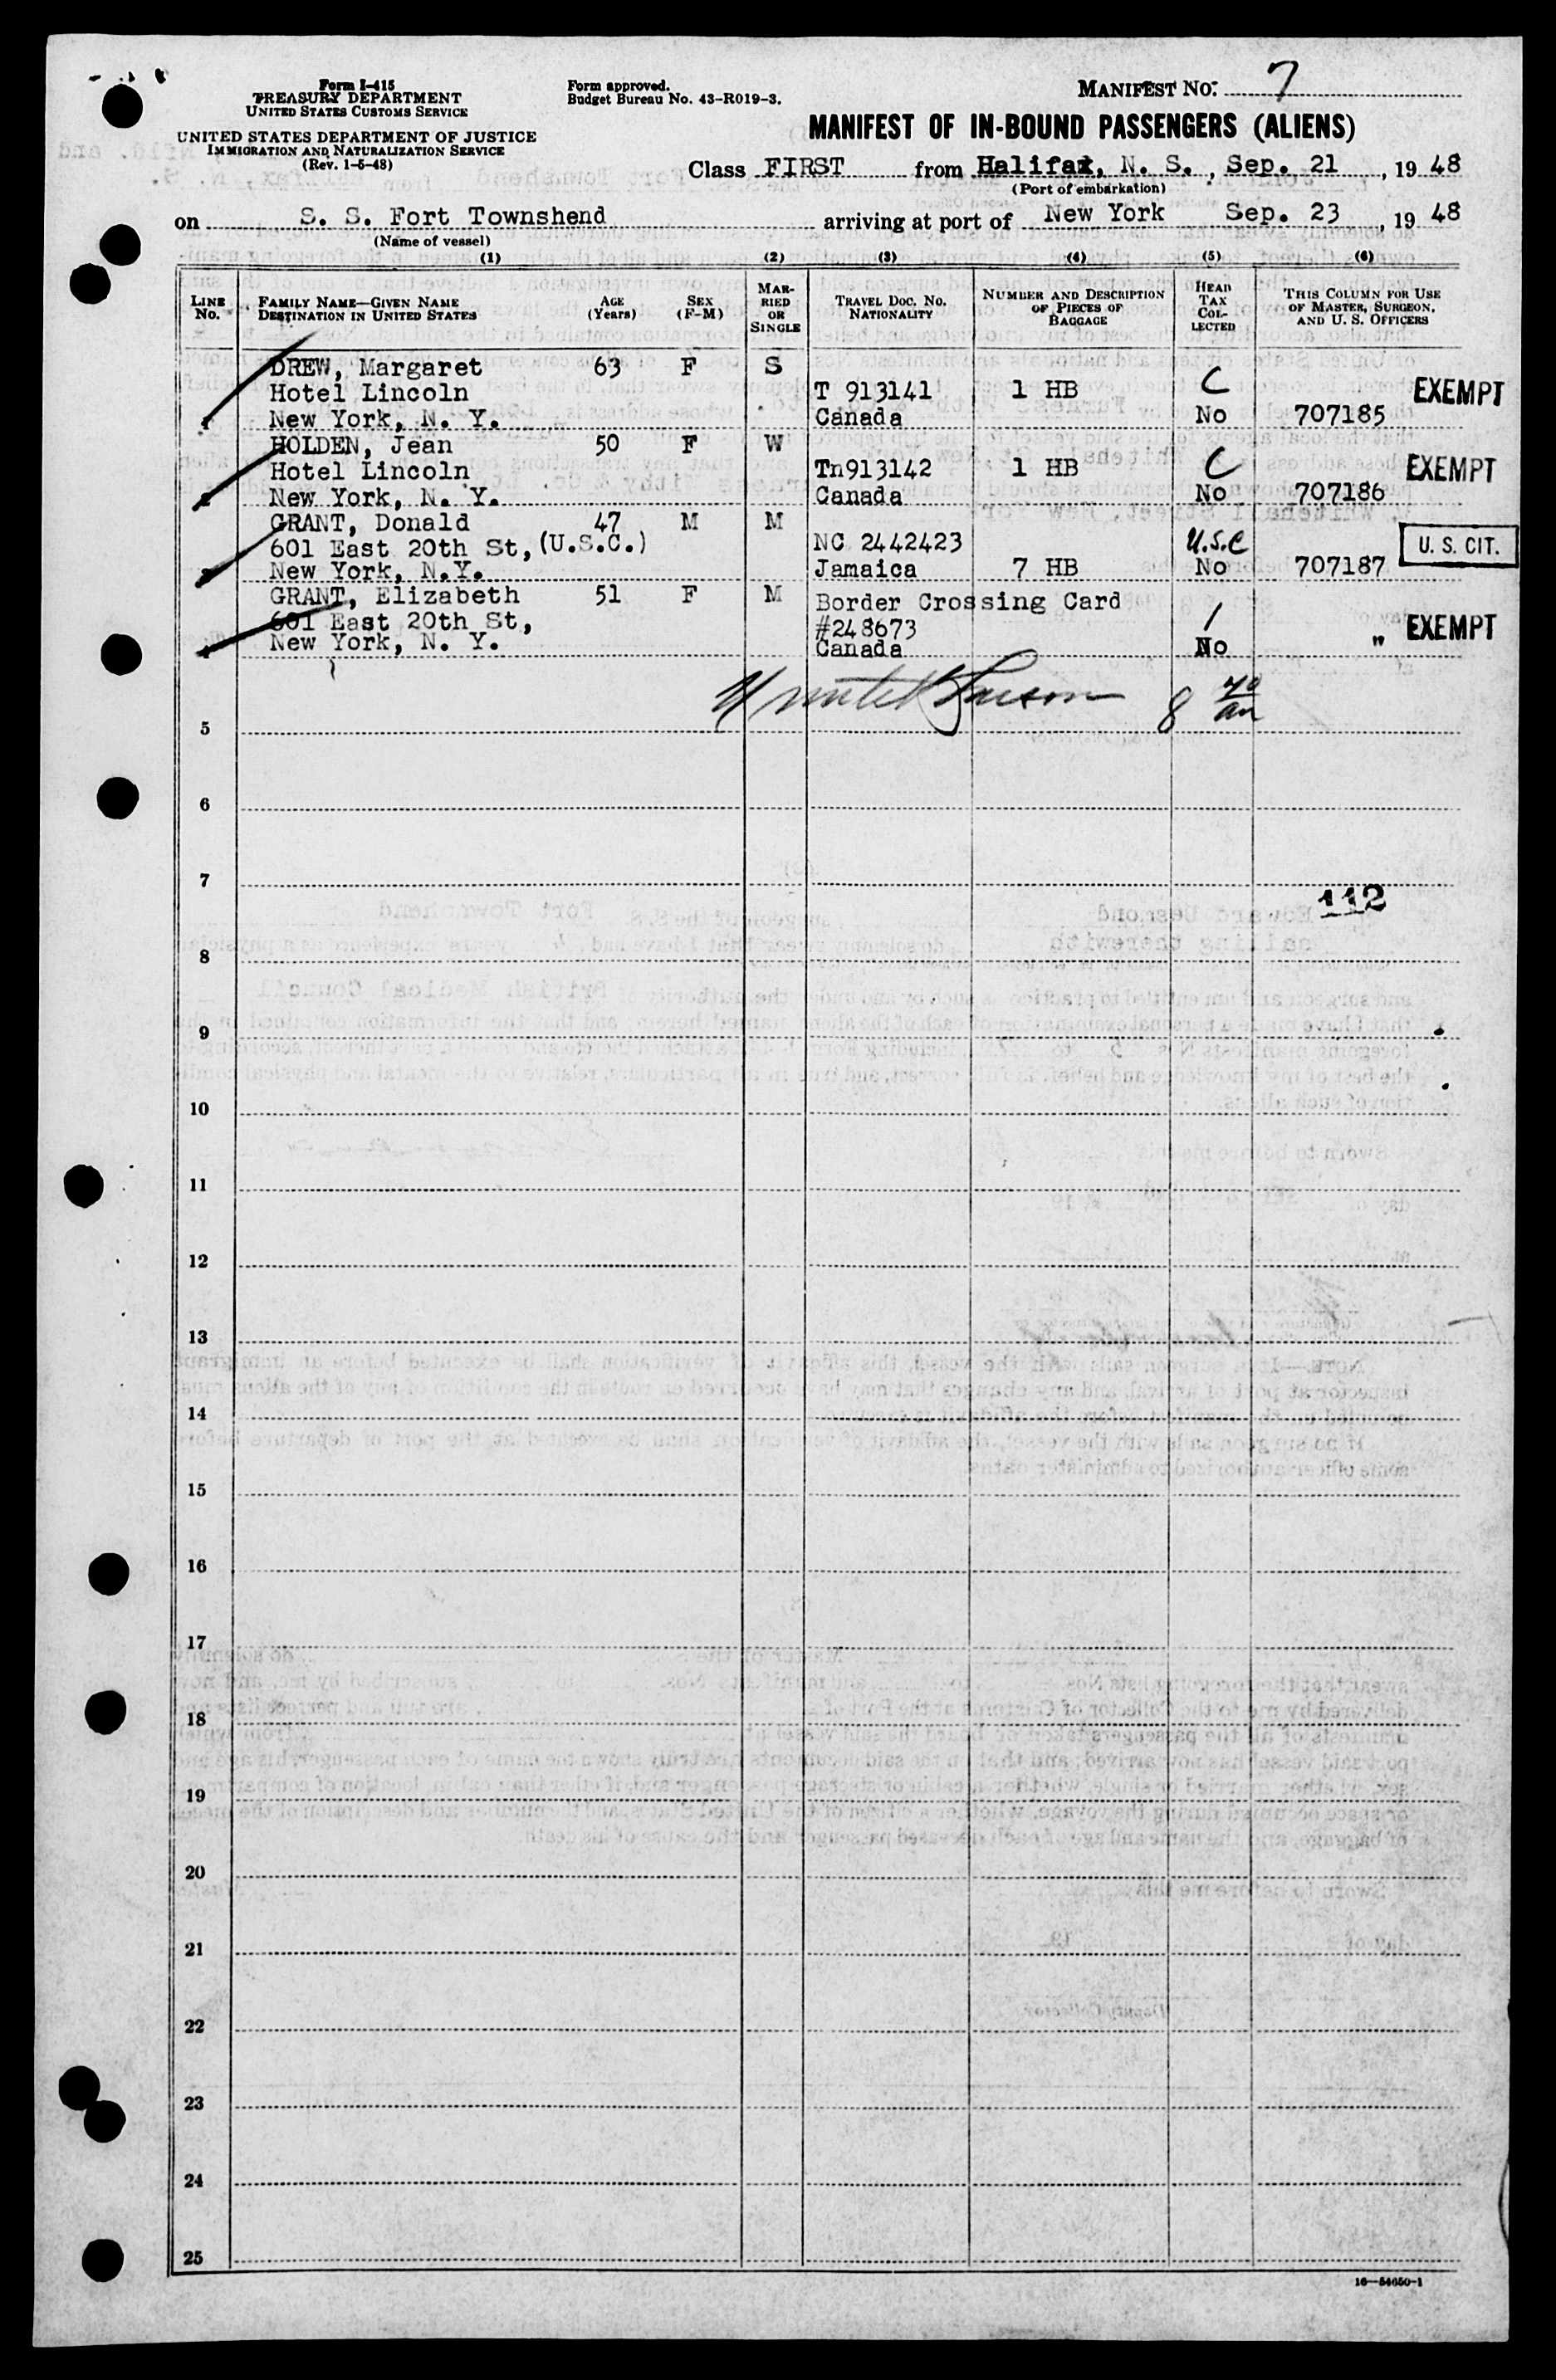 Form I-415
TREASURY DEPARTMENT
UNITED STATES CUSTOMS SERVICE
UNITED STATES DEPARTMENT OF JUSTICE
IMMIGRATION AND NATURALIZATION SERVICE
(Rev. 1-5-48)
Form approved.
Budget Bureau No. 43-R019-3.
MANIFEST NO. 7
MANIFEST OF IN-BOUND PASSENGERS (ALIENS)
Class FIRST from Halifax, N. S., Sep. 21, 19 48
(Port of embarkation)
on S. S. Fort Townshend arriving at port of New York Sep. 23, 19 48
(Name of vessel)
(1) (2) (3) (4) (5) (6)
LINE No. FAMILY NAME—GIVEN NAME DESTINATION IN UNITED STATES AGE (Years) SEX (F-M) MARRIED OR SINGLE TRAVEL DOC. NO. NATIONALITY NUMBER AND DESCRIPTION OF PIECES OF BAGGAGE HEAD TAX COLLECTED THIS COLUMN FOR USE OF MASTER, SURGEON, AND U. S. OFFICERS
DREW, Margaret 63 F S
Hotel Lincoln T 913141 1 HB C EXEMPT
New York, N. Y. Canada No 707185
HOLDEN, Jean 50 F W
Hotel Lincoln Tn913142 1 HB C EXEMPT
New York, N. Y. Canada No 707186
GRANT, Donald 47 M M
601 East 20th St, (U.S.C.) NC 2442423 U.S.C U. S. CIT.
New York, N.Y. Jamaica 7 HB No 707187
GRANT, Elizabeth 51 F M Border Crossing Card
601 East 20th St, #248673 / EXEMPT
New York, N. Y. Canada No "
8 40 am
5
6
7
112
8
9
10
11
12
13
14
15
16
17
18
19
20
21
22
23
24
25
16—54650-1